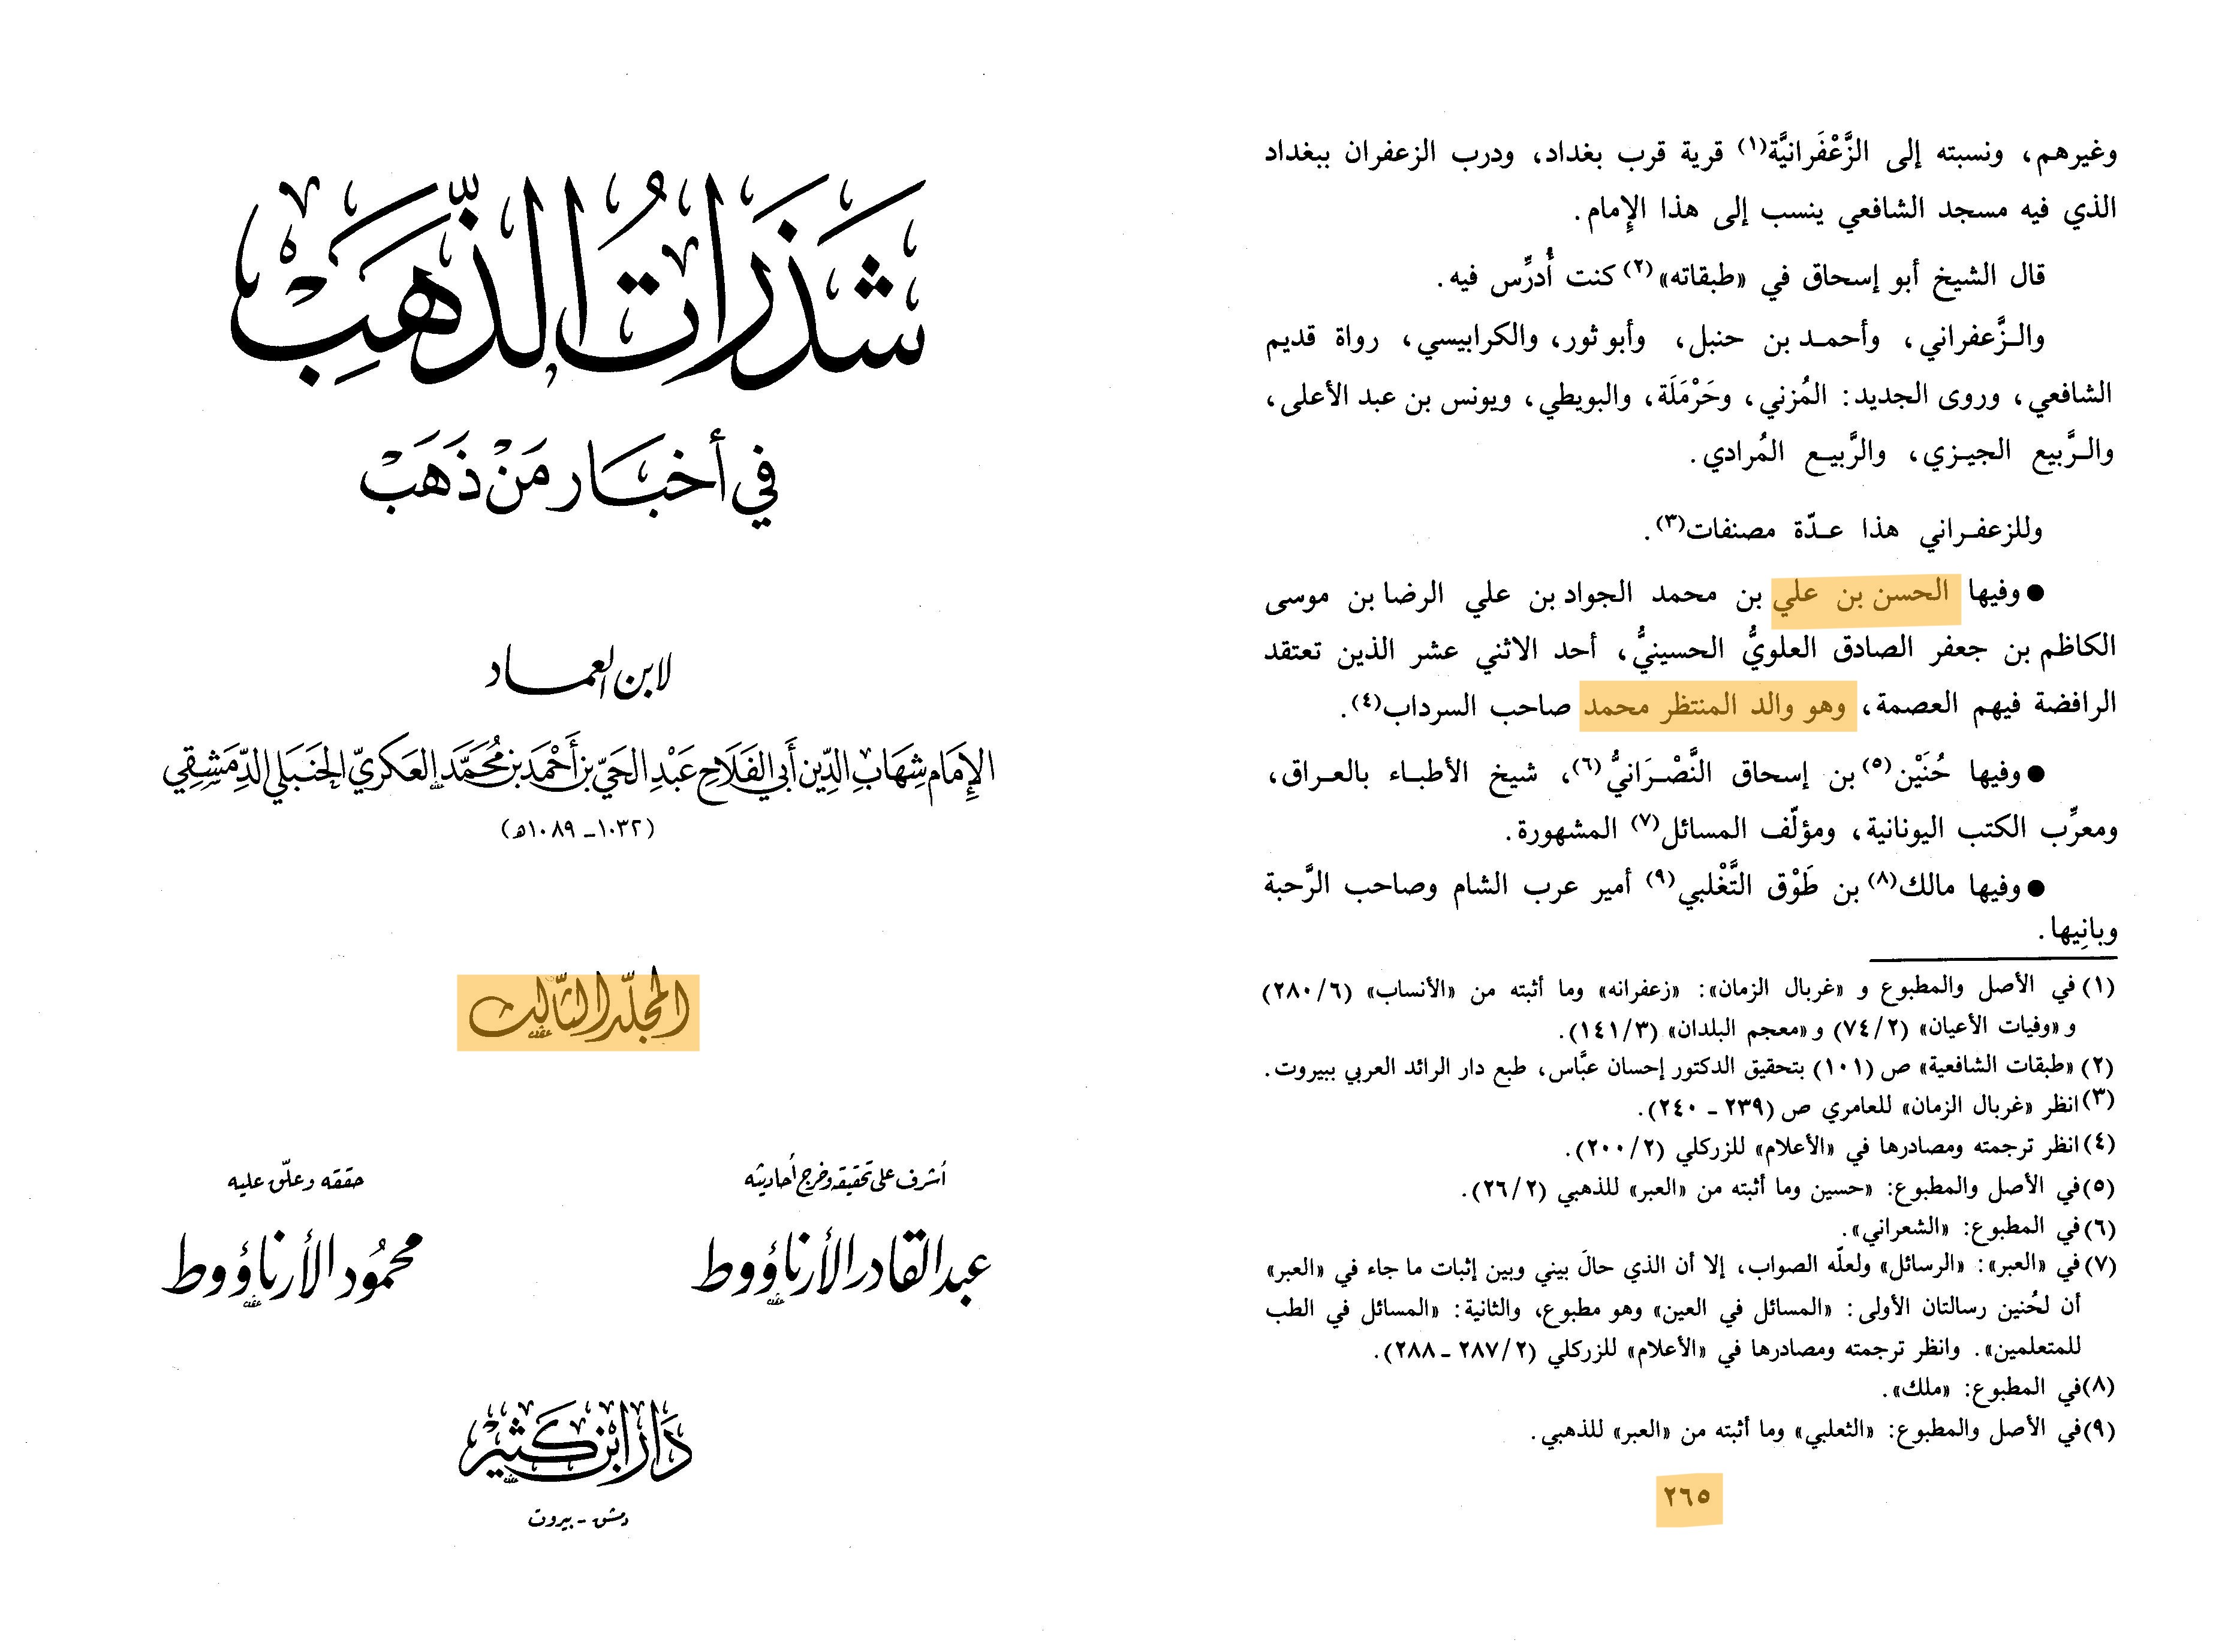 شَذَرَاتُ الذَّهَبْ
في أخبار مَنْ ذَهَبْ
لابن العماد
الإِمَام شِهَابِ الدِّين أَبي الفَلَاحِ عَبْدِ الحَيّ بن أَحْمَد بن مُحَمَّد العَكري الحَنبَلي الدِّمَشقِي
(١٠٣٢ - ١٠٨٩هـ)
المجلّد الثّالث
أشرف على تحقيقه وخرج أحاديثه
عبد القادر الأرناؤوط
حققه وعلّق عليه
محمُود الأرناؤوط
دَار ابن كَثير
دمشق - بيروت
وغيرهم، ونسبته إلى الزَّعْفَرانيَّة(١) قرية قرب بغداد، ودرب الزعفران ببغداد
الذي فيه مسجد الشافعي ينسب إلى هذا الإِمام.
قال الشيخ أبو إسحاق في «طبقاته»(٢) كنت أُدرِّس فيه.
والزَّعفراني، وأحمد بن حنبل، وأبو ثور، والكرابيسي، رواة قديم
الشافعي، وروى الجديد: المُزني، وحَرْمَلَة، والبويطي، ويونس بن عبد الأعلى،
والرَّبيع الجيزي، والرَّبيع المُرادي.
وللزعفراني هذا عدّة مصنفات(٣).
● وفيها الحسن بن علي بن محمد الجواد بن علي الرضا بن موسى
الكاظم بن جعفر الصادق العلويُّ الحسينيُّ، أحد الاثني عشر الذين تعتقد
الرافضة فيهم العصمة، وهو والد المنتظر محمد صاحب السرداب(٤).
● وفيها حُنَيْن(٥) بن إسحاق النَّصْرَانيُّ(٦)، شيخ الأطباء بالعراق،
ومعرِّب الكتب اليونانية، ومؤلّف المسائل(٧) المشهورة.
● وفيها مالك(٨) بن طَوْق التَّغْلبي(٩) أمير عرب الشام وصاحب الرَّحبة
وبانِيها.
(١) في الأصل والمطبوع و «غربال الزمان»: «زعفرانه» وما أثبته من «الأنساب» (٢٨٠/٦)
و «وفيات الأعيان» (٧٤/٢) و «معجم البلدان» (١٤١/٣).
(٢) «طبقات الشافعية» ص (١٠١) بتحقيق الدكتور إحسان عبَّاس، طبع دار الرائد العربي ببيروت.
(٣) انظر «غربال الزمان» للعامري ص (٢٣٩ - ٢٤٠).
(٤) انظر ترجمته ومصادرها في «الأعلام» للزركلي (٢٠٠/٢).
(٥) في الأصل والمطبوع: «حسين وما أثبته من «العبر» للذهبي (٢٦/٢).
(٦) في المطبوع: «الشعراني».
(٧) في «العبر»: «الرسائل» ولعلّه الصواب، إلا أن الذي حالَ بيني وبين إثبات ما جاء في «العبر»
أن لحُنين رسالتان الأولى: «المسائل في العين» وهو مطبوع، والثانية: «المسائل في الطب
للمتعلمين». وانظر ترجمته ومصادرها في «الأعلام» للزركلي (٢٨٧/٢ - ٢٨٨).
(٨) في المطبوع: «ملك».
(٩) في الأصل والمطبوع: «الثعلبي» وما أثبته من «العبر» للذهبي.
٢٦٥